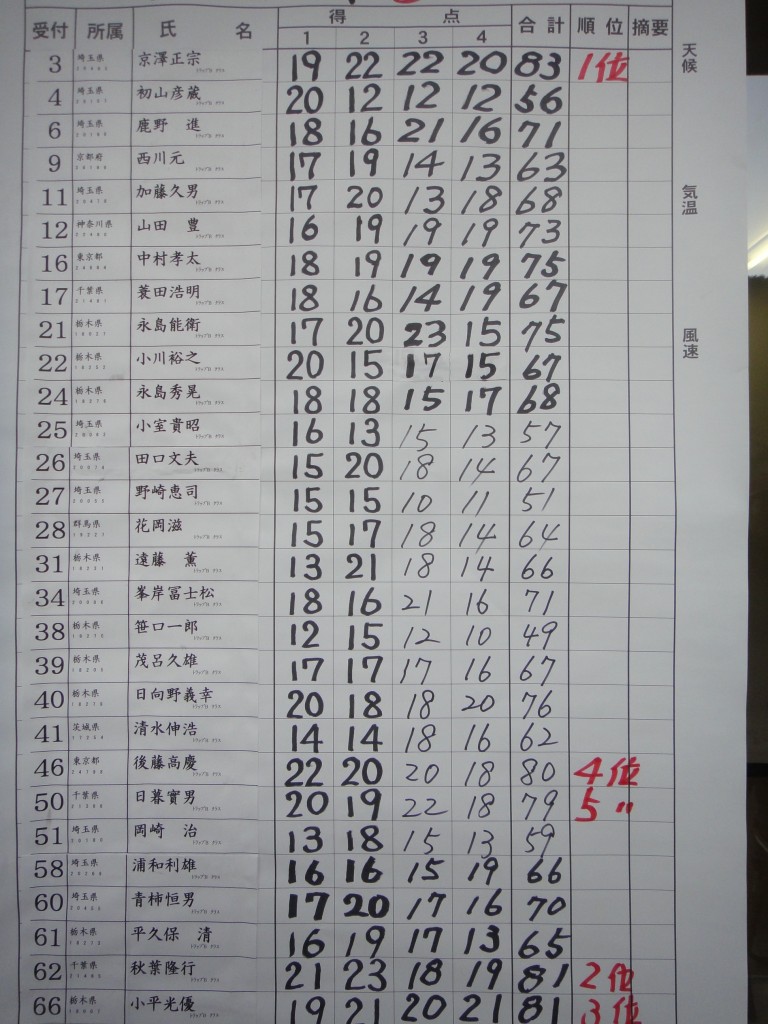 受付 所属 氏 名 得 点 合計 順位 摘要
1 2 3 4
3 埼玉県 京澤正宗 19 22 22 20 83 1位
4 埼玉県 初山彦蔵 20 12 12 12 56
6 埼玉県 鹿野 進 18 16 21 16 71
9 京都府 西川元 17 19 14 13 63
11 埼玉県 加藤久男 17 20 13 18 68
12 神奈川県 山田 豊 16 19 19 19 73
16 東京都 中村孝太 18 19 19 19 75
17 千葉県 蓑田浩明 18 16 14 19 67
21 栃木県 永島能衛 17 20 23 15 75
22 栃木県 小川裕之 20 15 17 15 67
24 栃木県 永島秀晃 18 18 15 17 68
25 埼玉県 小室貴昭 16 13 15 13 57
26 埼玉県 田口文夫 15 20 18 14 67
27 埼玉県 野崎恵司 15 15 10 11 51
28 群馬県 花岡滋 15 17 18 14 64
31 栃木県 遠藤 薫 13 21 18 14 66
34 埼玉県 峯岸冨士松 18 16 21 16 71
38 栃木県 笹口一郎 12 15 12 10 49
39 栃木県 茂呂久雄 17 17 17 16 67
40 栃木県 日向野義幸 20 18 18 20 76
41 茨城県 清水伸浩 14 14 18 16 62
46 東京都 後藤高慶 22 20 20 18 80 4位
50 千葉県 日暮實男 20 19 22 18 79 5〃
51 埼玉県 岡崎 治 13 18 15 13 59
58 埼玉県 浦和利雄 16 16 15 19 66
60 埼玉県 青柿恒男 17 20 17 16 70
61 栃木県 平久保 清 16 19 17 13 65
62 千葉県 秋葉隆行 21 23 18 19 81 2位
66 栃木県 小平光優 19 21 20 21 81 3位
天候
気温
風速